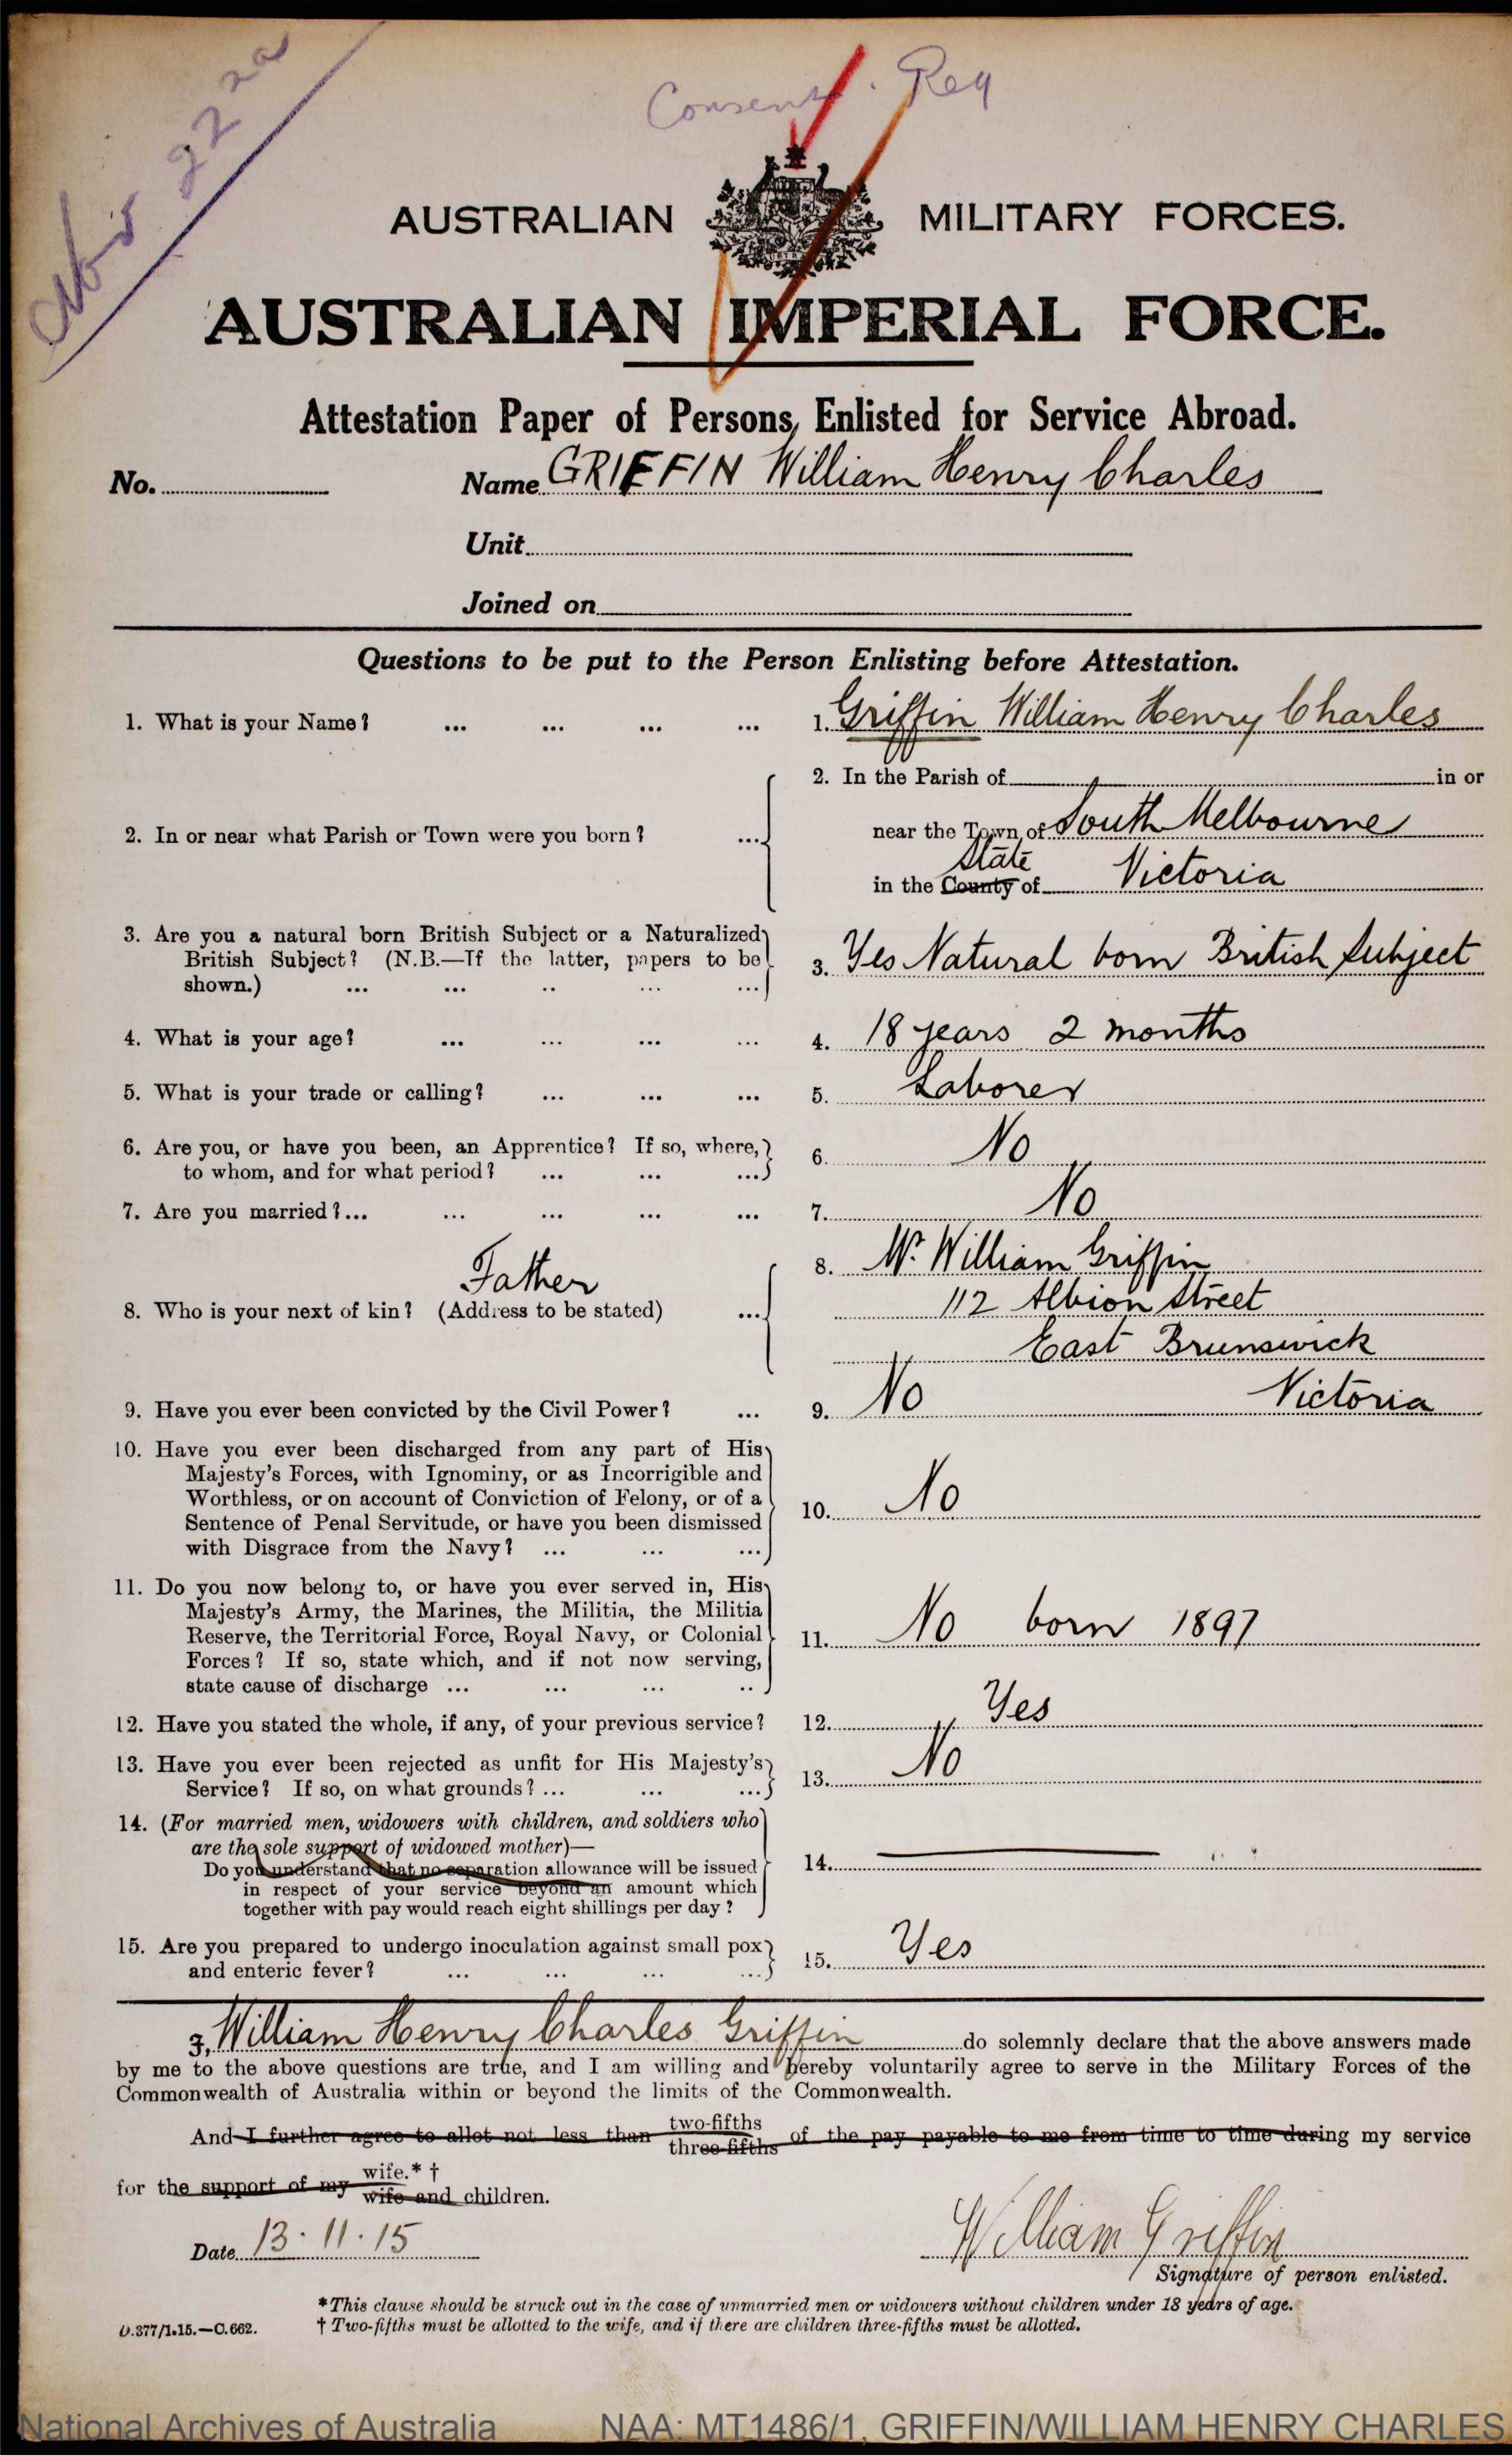 Consent. Req
AUSTRALIAN MILITARY FORCES.
AUSTRALIAN IMPERIAL FORCE.
Attestation Paper of Persons, Enlisted for Service Abroad.
No. Name GRIFFIN William Henry Charles
Unit
Joined on
Questions to be put to the Person Enlisting before Attestation.
1. What is your Name? ... ... ... ... 1. Griffin William Henry Charles
2. In the Parish of in or
2. In or near what Parish or Town were you born? ... near the Town of South Melbourne
State
in the County of Victoria
3. Are you a natural born British Subject or a Naturalized
British Subject? (N.B.—If the latter, papers to be 3. Yes Natural born British Subject
shown.) ... ... .. ... ...
4. What is your age? ... ... ... ... 4. 18 years 2 months
5. What is your trade or calling? ... ... ... 5. Laborer
6. Are you, or have you been, an Apprentice? If so, where, 6. No
to whom, and for what period? ... ... ...
7. Are you married?... ... ... ... ... 7. No
Father 8. Mr. William Griffin
8. Who is your next of kin? (Address to be stated) ... 112 Albion Street
East Brunswick
9. Have you ever been convicted by the Civil Power? ... 9. No Victoria
10. Have you ever been discharged from any part of His
Majesty's Forces, with Ignominy, or as Incorrigible and
Worthless, or on account of Conviction of Felony, or of a 10. No
Sentence of Penal Servitude, or have you been dismissed
with Disgrace from the Navy? ... ... ...
11. Do you now belong to, or have you ever served in, His
Majesty's Army, the Marines, the Militia, the Militia
Reserve, the Territorial Force, Royal Navy, or Colonial 11. No born 1897
Forces? If so, state which, and if not now serving,
state cause of discharge ... ... ... ..
12. Have you stated the whole, if any, of your previous service? 12. Yes
13. Have you ever been rejected as unfit for His Majesty's 13. No
Service? If so, on what grounds? ... ... ...
14. (For married men, widowers with children, and soldiers who
are the sole support of widowed mother)—
Do you understand that no separation allowance will be issued 14.
in respect of your service beyond an amount which
together with pay would reach eight shillings per day?
15. Are you prepared to undergo inoculation against small pox 15. Yes
and enteric fever? ... ... ... ...
I, William Henry Charles Griffin do solemnly declare that the above answers made
by me to the above questions are true, and I am willing and hereby voluntarily agree to serve in the Military Forces of the
Commonwealth of Australia within or beyond the limits of the Commonwealth.
And I further agree to allot not less than two-fifths three-fifths of the pay payable to me from time to time during my service
for the support of my wife.* † wife and children.
Date 13.11.15
William Griffin
Signature of person enlisted.
*This clause should be struck out in the case of unmarried men or widowers without children under 18 years of age.
D.377/1.15.—C.662. † Two-fifths must be allotted to the wife, and if there are children three-fifths must be allotted.
National Archives of Australia NAA: MT1486/1, GRIFFIN/WILLIAM HENRY CHARLES